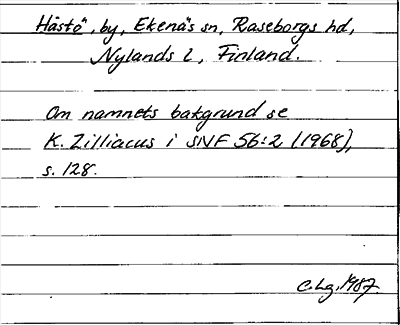 Hästö, by, Ekenäs sn, Raseborgs hd,
Nylands l, Finland.
Om namnets bakgrund se
K. Zilliacus i SNF 56:2 (1968),
s. 128.
C.Lg. 1987.